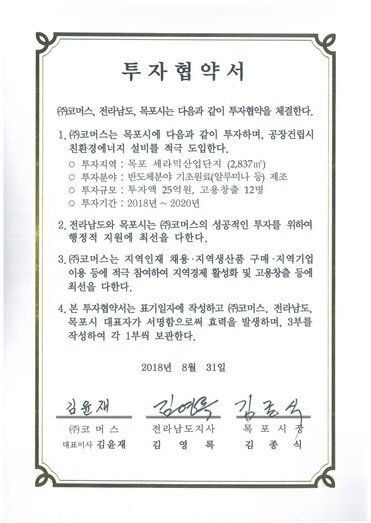 투자협약서
㈜코머스, 전라남도, 목포시는 다음과 같이 투자협약을 체결한다.
1. ㈜코머스는 목포시에 다음과 같이 투자하며, 공장건립시
친환경에너지 설비를 적극 도입한다.
○ 투자지역 : 목포 세라믹산업단지 (2,837㎡)
○ 투자분야 : 반도체분야 기초원료(알루미나 등) 제조
○ 투자규모 : 투자액 25억원, 고용창출 12명
○ 투자기간 : 2018년 ~ 2020년
2. 전라남도와 목포시는 ㈜코머스의 성공적인 투자를 위하여
행정적 지원에 최선을 다한다.
3. ㈜코머스는 지역인재 채용·지역생산품 구매·지역기업
이용 등에 적극 참여하여 지역경제 활성화 및 고용창출 등에
최선을 다한다.
4. 본 투자협약서는 표기일자에 작성하고 ㈜코머스, 전라남도,
목포시 대표자가 서명함으로써 효력을 발생하며, 3부를
작성하여 각 1부씩 보관한다.
2018년 8월 31일
김윤재 김영록 김종식
㈜코머스 전라남도지사 목포시장
대표이사 김윤재 김영록 김종식